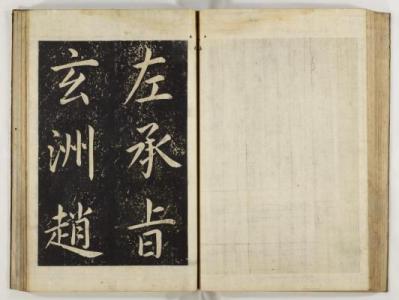 左承旨
玄洲趙